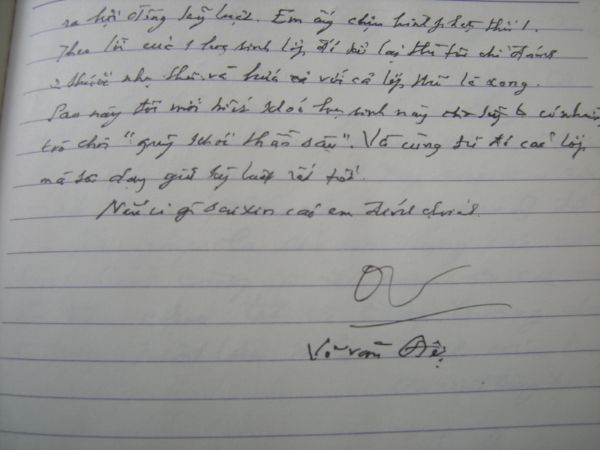 ra hội đồng kỷ luật. Em ấy chọn hình phạt thứ 1.
Theo lời của 1 học sinh lớp đó kể lại thì tôi chỉ đánh
2 thước nhẹ thôi và hứa với cả lớp thế là xong.
Sau này tôi mới biết khối học sinh này có những
trò chơi "quỷ khốc thần sầu". Và cũng từ đó các lớp
mà tôi dạy giữ kỷ luật rất tốt.
Nếu có gì sai xin các em đính chính.
Võ văn